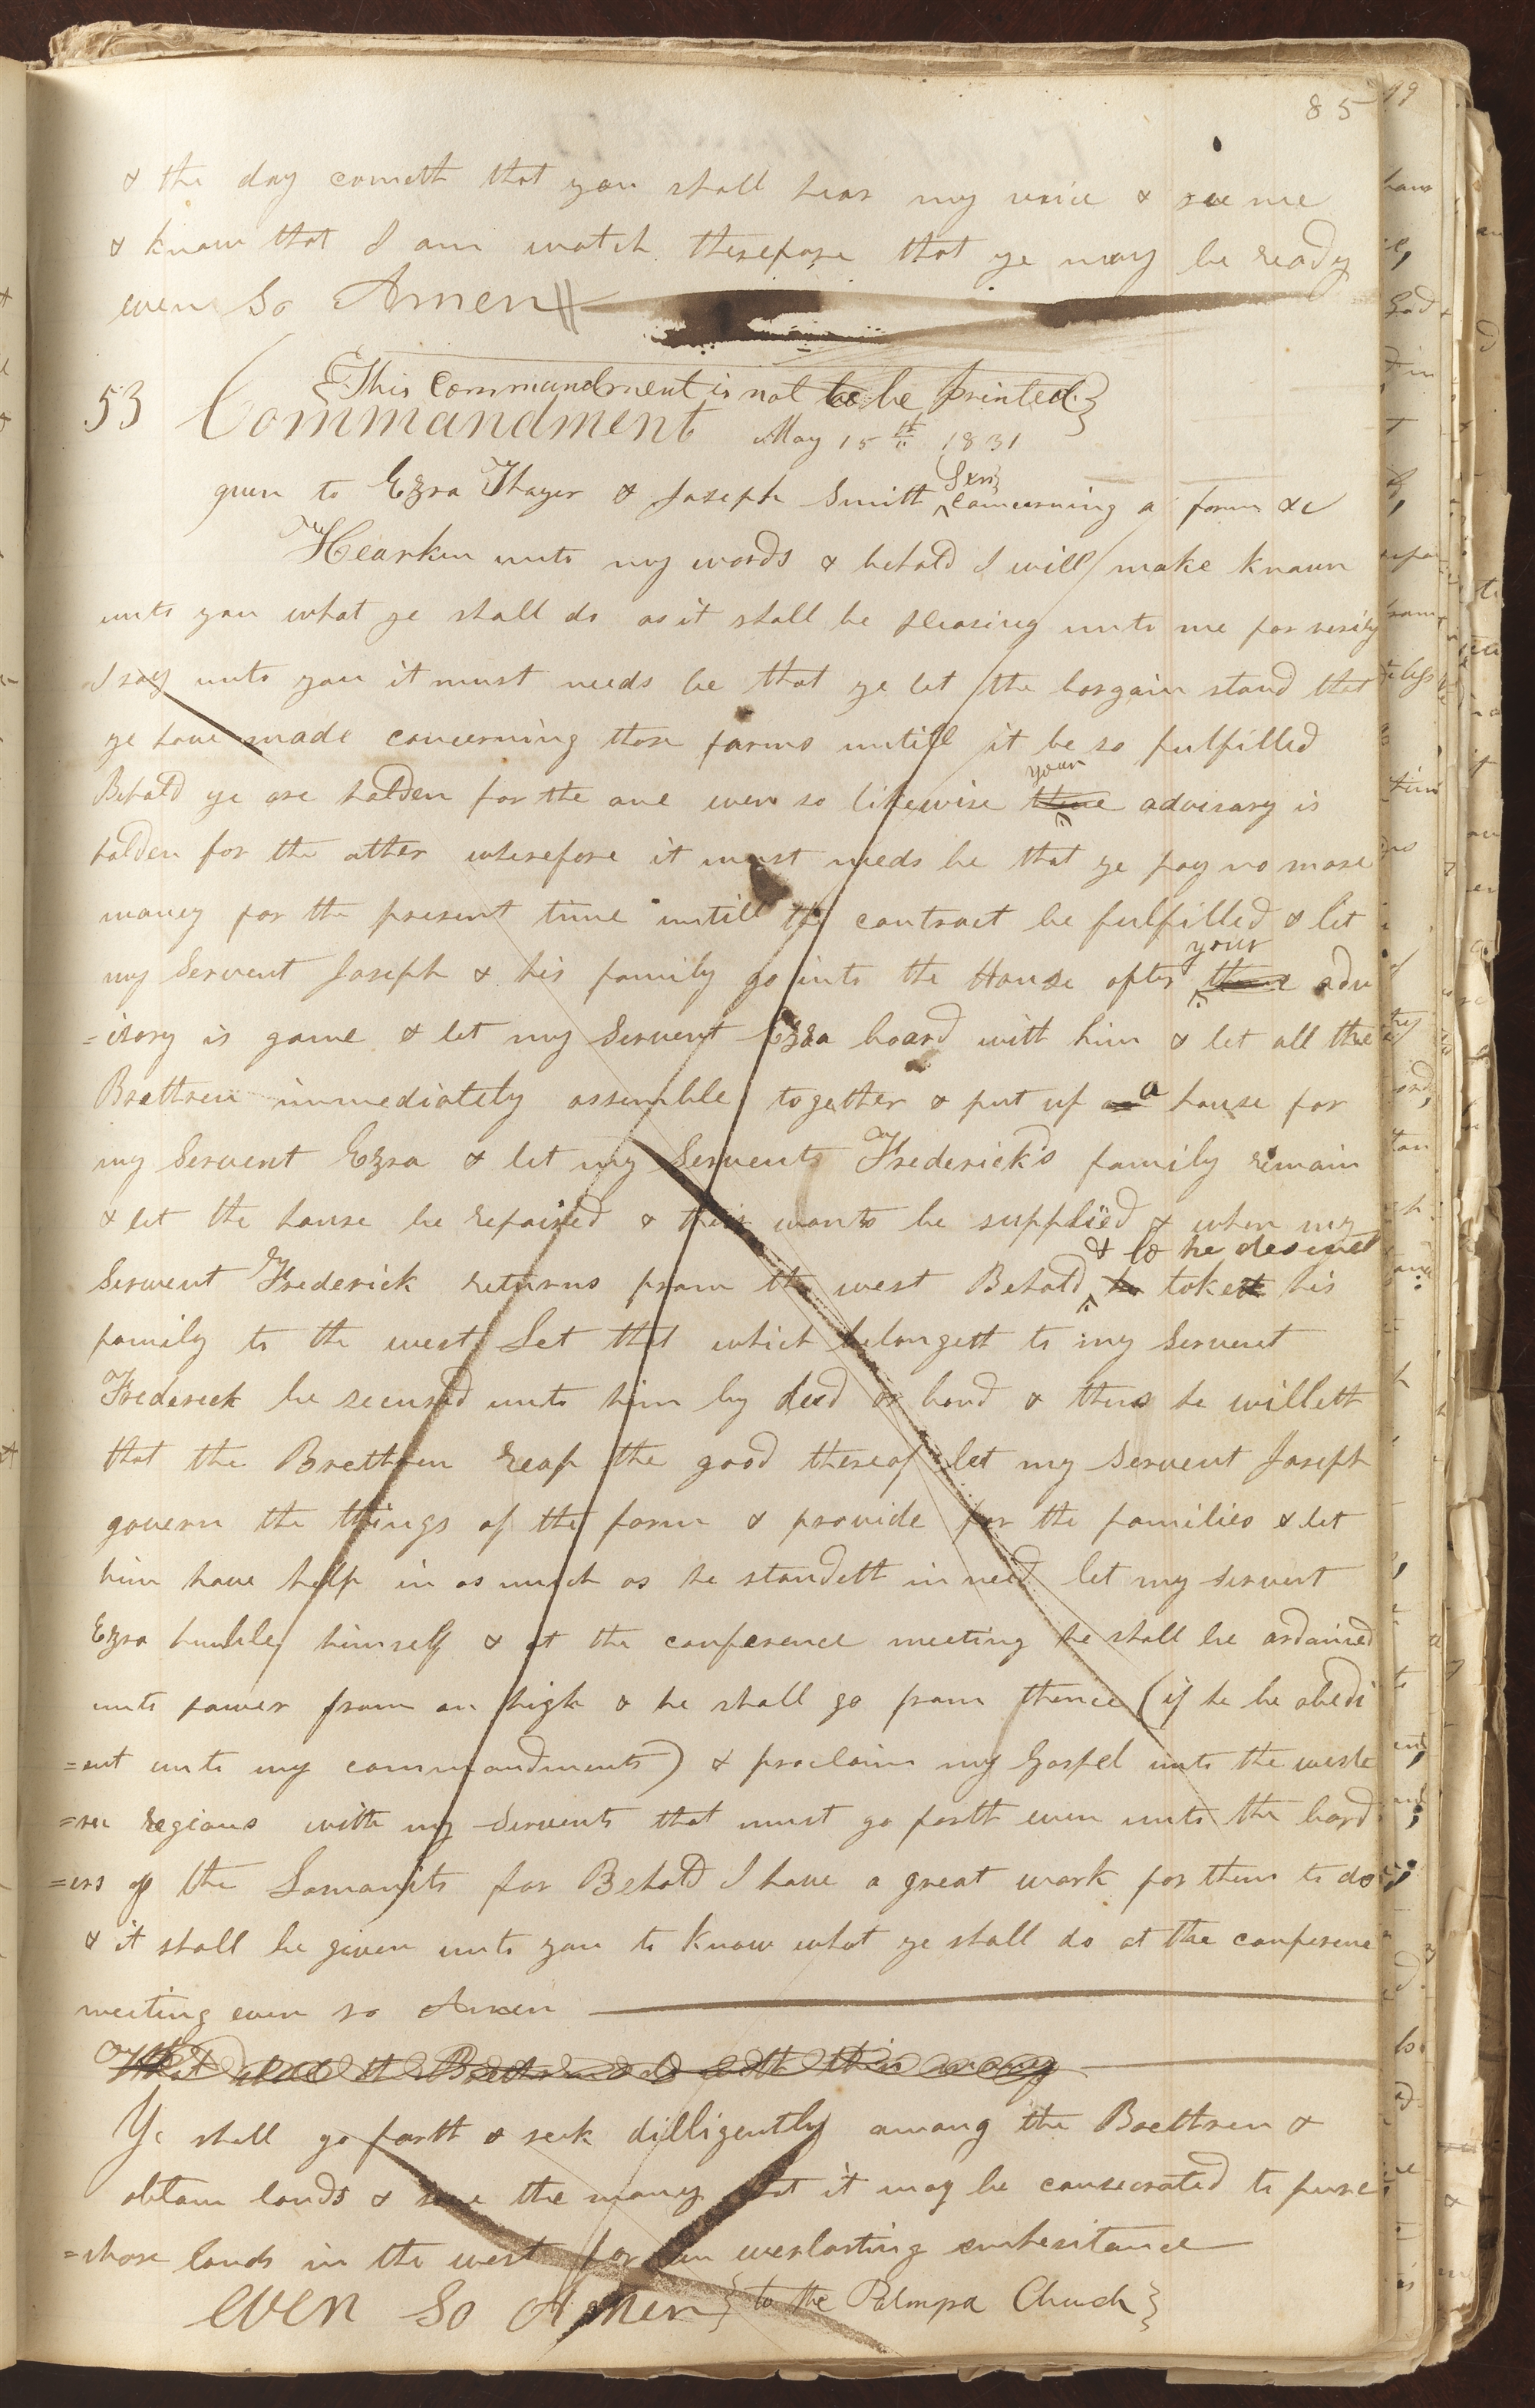 85
& the day cometh that you shall hear my voice & see me
& know that I am watch therefore that ye may be ready
even so Amen
{This Commandment is not to be printed.}
53 Commandment May 15th 1831
given to Ezra Thayer & Joseph Smith Sen concerning a farm &c
Hearken unto my words & behold I will make known
unto you what ye shall do as it shall be pleasing unto me for verily
I say unto you it must needs be that ye let the bargain stand that
ye have made concerning those farms untill it be so fulfilled
your
Behold ye are holden for the one even so likewise thine advisary is
holden for the other wherefore it must needs be that ye pay no more
money for the present time untill the contract be fulfilled & let
your
my Servent Joseph & his family go into the House after thine adv
=isary is gone & let my Servent Ezra board with him & let all the
Brethren immediately assemble together & put up a house for
my Servent Ezra & let my Servents Frederick's family remain
& let the house be repaired & their wants be supplied & when my
& lo he desiret
Servent Frederick returns from the west Behold he taketh his
family to the west Let that which belongeth to my Servent
Frederick be secured unto him by deed or bond & thus he willeth
that the Brethren reap the good thereof let my Servent Joseph
govern the things of the farm & provide for the families & let
him have help in as much as he standeth in need let my servent
Ezra humble himself & at the conference meeting he shall be ordained
unto power from on high & he shall go from thence (if he be obedi
=ent unto my commandments) & proclaim my Gospel unto the weste
=rn regions with my Servents that must go forth even unto the bord
=ers of the Lamanits for Behold I have a great work for them to do
& it shall be given unto you to know what ye shall do at the conference
meeting even so Amen
What shall the Brethren do with their money
Ye shall go forth & seek dilligently among the Brethren &
obtain lands & save the money that it may be consecrated to purc
=chase lands in the west for an everlasting enheritance
even so Amen {to the Palmyra Church}